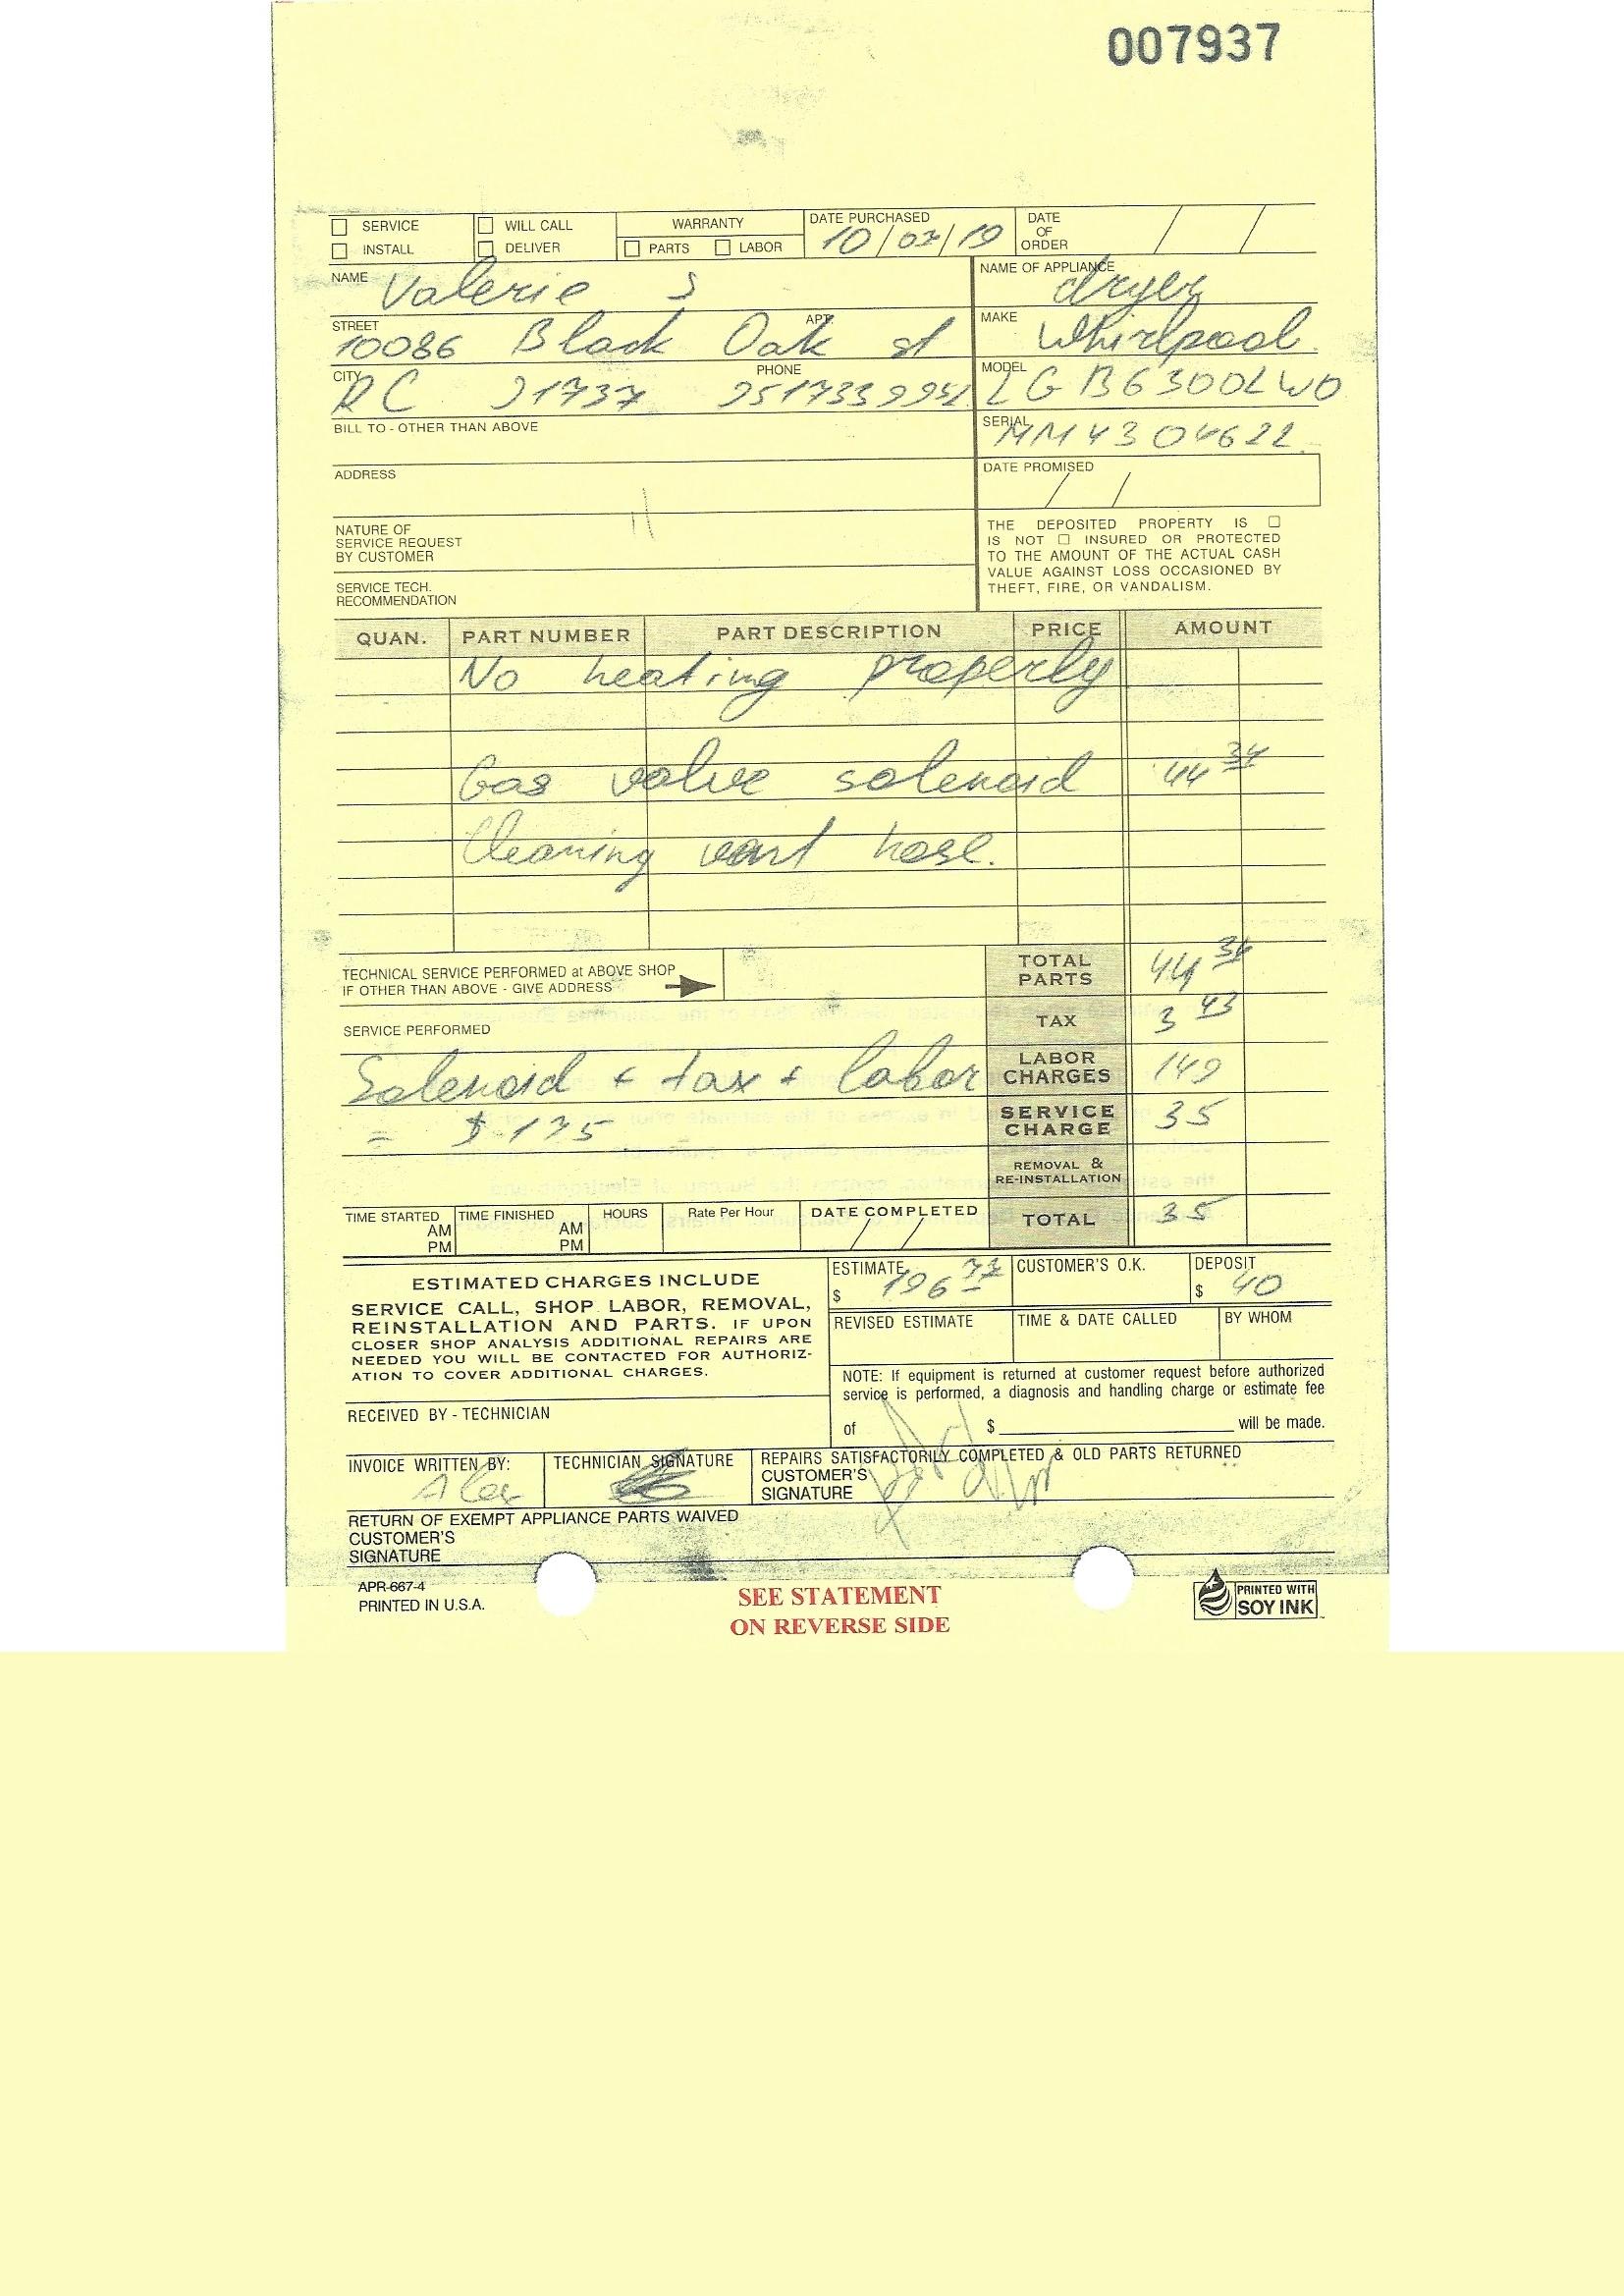 007937
☐ SERVICE ☐ WILL CALL WARRANTY DATE PURCHASED DATE OF ORDER
☐ INSTALL ☐ DELIVER ☐ PARTS ☐ LABOR 10/07/19 / /
NAME Valerie S NAME OF APPLIANCE dryer
STREET 10086 Black Oak st APT MAKE Whirlpool
CITY RC 91737 PHONE 9517339952 MODEL LGB6300LW0
BILL TO - OTHER THAN ABOVE SERIAL MM4304622
ADDRESS DATE PROMISED / /
NATURE OF
SERVICE REQUEST
BY CUSTOMER
SERVICE TECH.
RECOMMENDATION
THE DEPOSITED PROPERTY IS ☐
IS NOT ☐ INSURED OR PROTECTED
TO THE AMOUNT OF THE ACTUAL CASH
VALUE AGAINST LOSS OCCASIONED BY
THEFT, FIRE, OR VANDALISM.
QUAN. PART NUMBER PART DESCRIPTION PRICE AMOUNT
No heating properly
Gas valve solenoid 44 34
Cleaning vent hose.
TECHNICAL SERVICE PERFORMED at ABOVE SHOP
IF OTHER THAN ABOVE - GIVE ADDRESS
TOTAL PARTS 44 34
TAX 3 43
SERVICE PERFORMED
Solenoid + tax + labor
= $ 175
LABOR CHARGES 149
SERVICE CHARGE 35
REMOVAL & RE-INSTALLATION
TOTAL 35
TIME STARTED AM PM TIME FINISHED AM PM HOURS Rate Per Hour DATE COMPLETED / /
ESTIMATED CHARGES INCLUDE
SERVICE CALL, SHOP LABOR, REMOVAL,
REINSTALLATION AND PARTS. IF UPON
CLOSER SHOP ANALYSIS ADDITIONAL REPAIRS ARE
NEEDED YOU WILL BE CONTACTED FOR AUTHORIZ-
ATION TO COVER ADDITIONAL CHARGES.
ESTIMATE $ 196 77 CUSTOMER'S O.K. DEPOSIT $ 40
REVISED ESTIMATE TIME & DATE CALLED BY WHOM
NOTE: If equipment is returned at customer request before authorized
service is performed, a diagnosis and handling charge or estimate fee
of $ will be made.
RECEIVED BY - TECHNICIAN
INVOICE WRITTEN BY: Alex TECHNICIAN SIGNATURE REPAIRS SATISFACTORILY COMPLETED & OLD PARTS RETURNED
CUSTOMER'S
SIGNATURE
RETURN OF EXEMPT APPLIANCE PARTS WAIVED
CUSTOMER'S
SIGNATURE
APR-667-4
PRINTED IN U.S.A.
SEE STATEMENT
ON REVERSE SIDE
PRINTED WITH
SOY INK